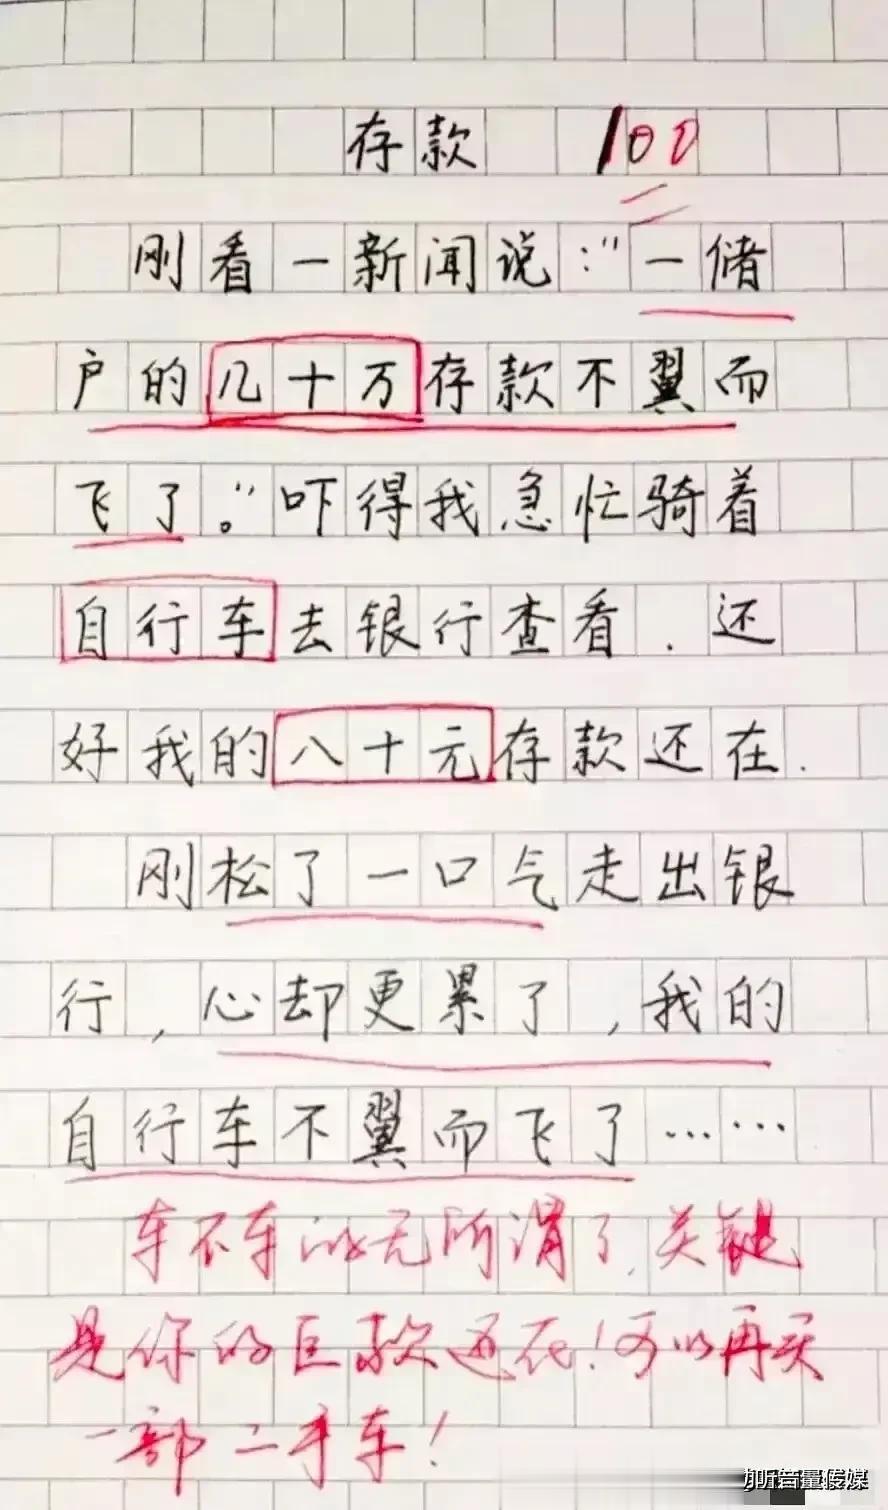 存款 100
刚看一新闻说:"一储
户的几十万存款不翼而
飞了。"吓得我急忙骑着
自行车去银行查看.还
好我的八十元存款还在.
刚松了一口气走出银
行,心却更累了,我的
自行车不翼而飞了……
车不车的无所谓了,关键
是你的巨款还在!可以再买
一部二手车!
加听音量传媒